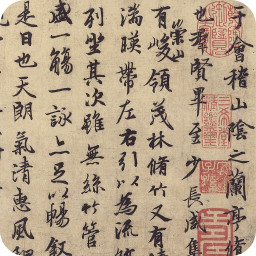 于會稽山陰之蘭亭脩
也羣賢畢至少長咸集
有崇山峻領茂林脩竹又有清
湍暎帶左右引以為流
列坐其次雖無絲竹管
盛一觴一詠亦足以暢敘
是日也天朗氣清惠風